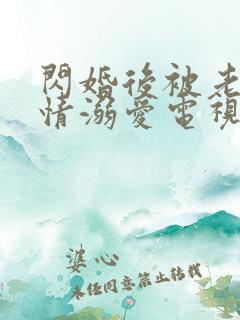 閃婚後被老
情溺愛電視
婆心
未经同意禁止转载